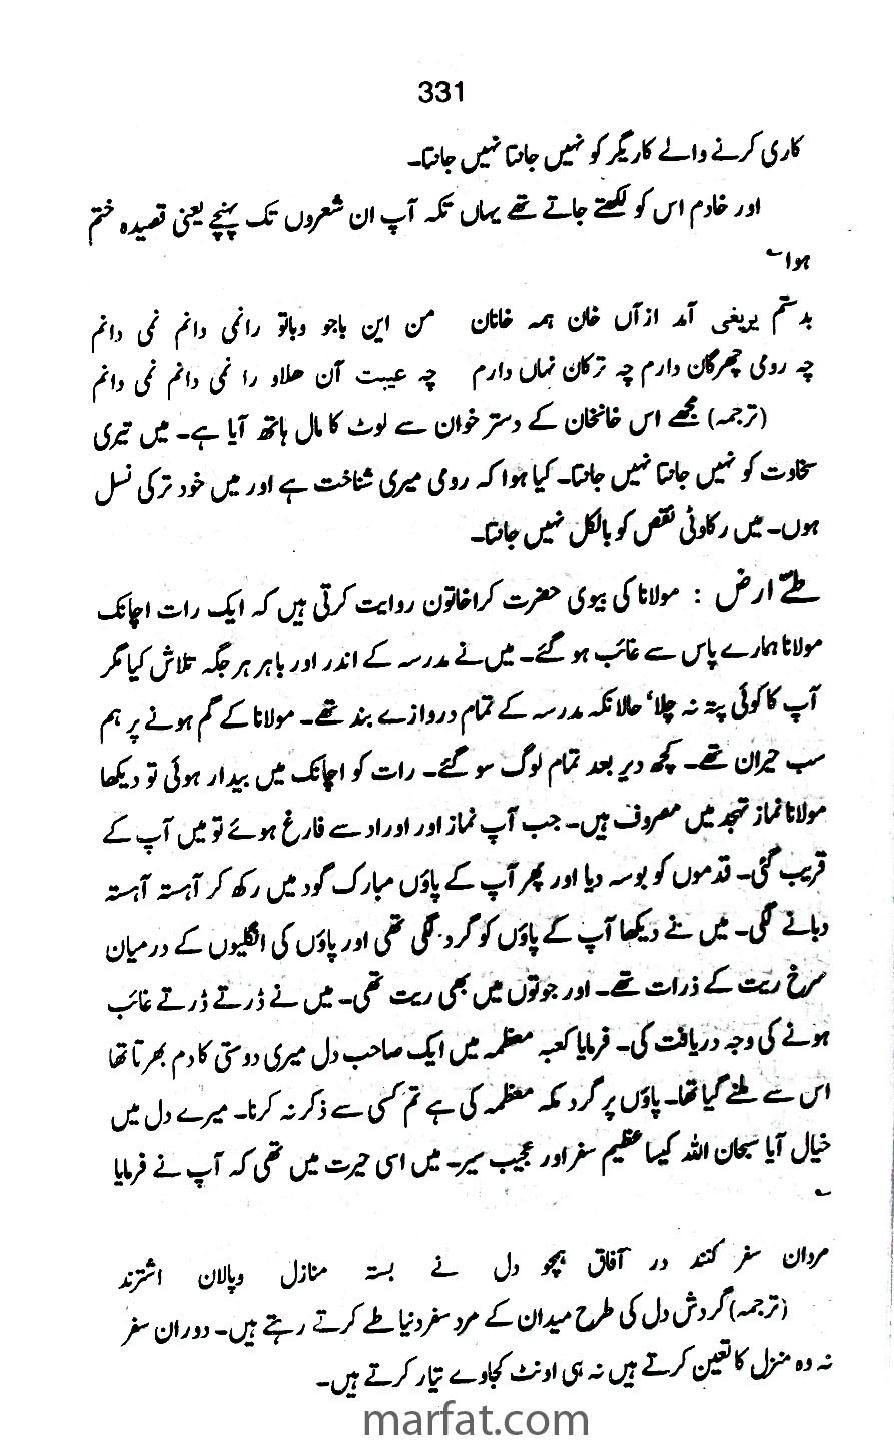 331
کاری کرنے والے کاریگر کو نہیں جانتا نہیں جانتا۔
اور خادم اس کو لکھتے جاتے تھے یہاں تک کہ آپ ان شعروں تک پہنچے یعنی قصیدہ ختم
ہوا ؎
بدستم یریغی آمد ازآں خان ہمہ خانان من این باجو وباتو رانمی دانم نمی دانم
چہ رومی چھرگان دارم چہ ترکان نہاں دارم چہ عیبت آن ھلاو را نمی دانم نمی دانم
(ترجمہ) مجھے اس خانخان کے دستر خوان سے لوٹ کا مال ہاتھ آیا ہے۔ میں تیری
سخاوت کو نہیں جانتا نہیں جانتا۔ کیا ہوا کہ رومی میری شناخت ہے اور میں خود ترکی نسل
ہوں۔ میں رکاوٹی نقص کو بالکل نہیں جانتا۔
طے ارض : مولانا کی بیوی حضرت کراخاتون روایت کرتی ہیں کہ ایک رات اچانک
مولانا ہمارے پاس سے غائب ہو گئے۔ میں نے مدرسہ کے اندر اور باہر ہر جگہ تلاش کیا مگر
آپ کا کوئی پتہ نہ چلا، حالانکہ مدرسہ کے تمام دروازے بند تھے۔ مولانا کے گم ہونے پر ہم
سب حیران تھے۔ کچھ دیر بعد تمام لوگ سو گئے۔ رات کو اچانک میں بیدار ہوئی تو دیکھا
مولانا نماز تہجد میں مصروف ہیں۔ جب آپ نماز اور اوراد سے فارغ ہوئے تو میں آپ کے
قریب گئی۔ قدموں کو بوسہ دیا اور پھر آپ کے پاؤں مبارک گود میں رکھ کر آہستہ آہستہ
دبانے لگی۔ میں نے دیکھا آپ کے پاؤں کو گرد لگی تھی اور پاؤں کی انگلیوں کے درمیان
سرخ ریت کے ذرات تھے۔ اور جوتوں میں بھی ریت تھی۔ میں نے ڈرتے ڈرتے غائب
ہونے کی وجہ دریافت کی۔ فرمایا کعبہ معظمہ میں ایک صاحب دل میری دوستی کا دم بھرتا تھا
اس سے ملنے گیا تھا۔ پاؤں پر گرد مکہ معظمہ کی ہے تم کسی سے ذکر نہ کرنا۔ میرے دل میں
خیال آیا سبحان اللہ کیسا عظیم سفر اور عجیب سیر۔ میں اسی حیرت میں تھی کہ آپ نے فرمایا
؎
مردان سفر کنند در آفاق ہمچو دل نے بستہ منازل وپالان اشترند
(ترجمہ) گردش دل کی طرح میدان کے مرد سفر دنیا طے کرتے رہتے ہیں۔ دوران سفر
نہ وہ منزل کا تعین کرتے ہیں نہ ہی اونٹ کجاوے تیار کرتے ہیں۔
marfat.com